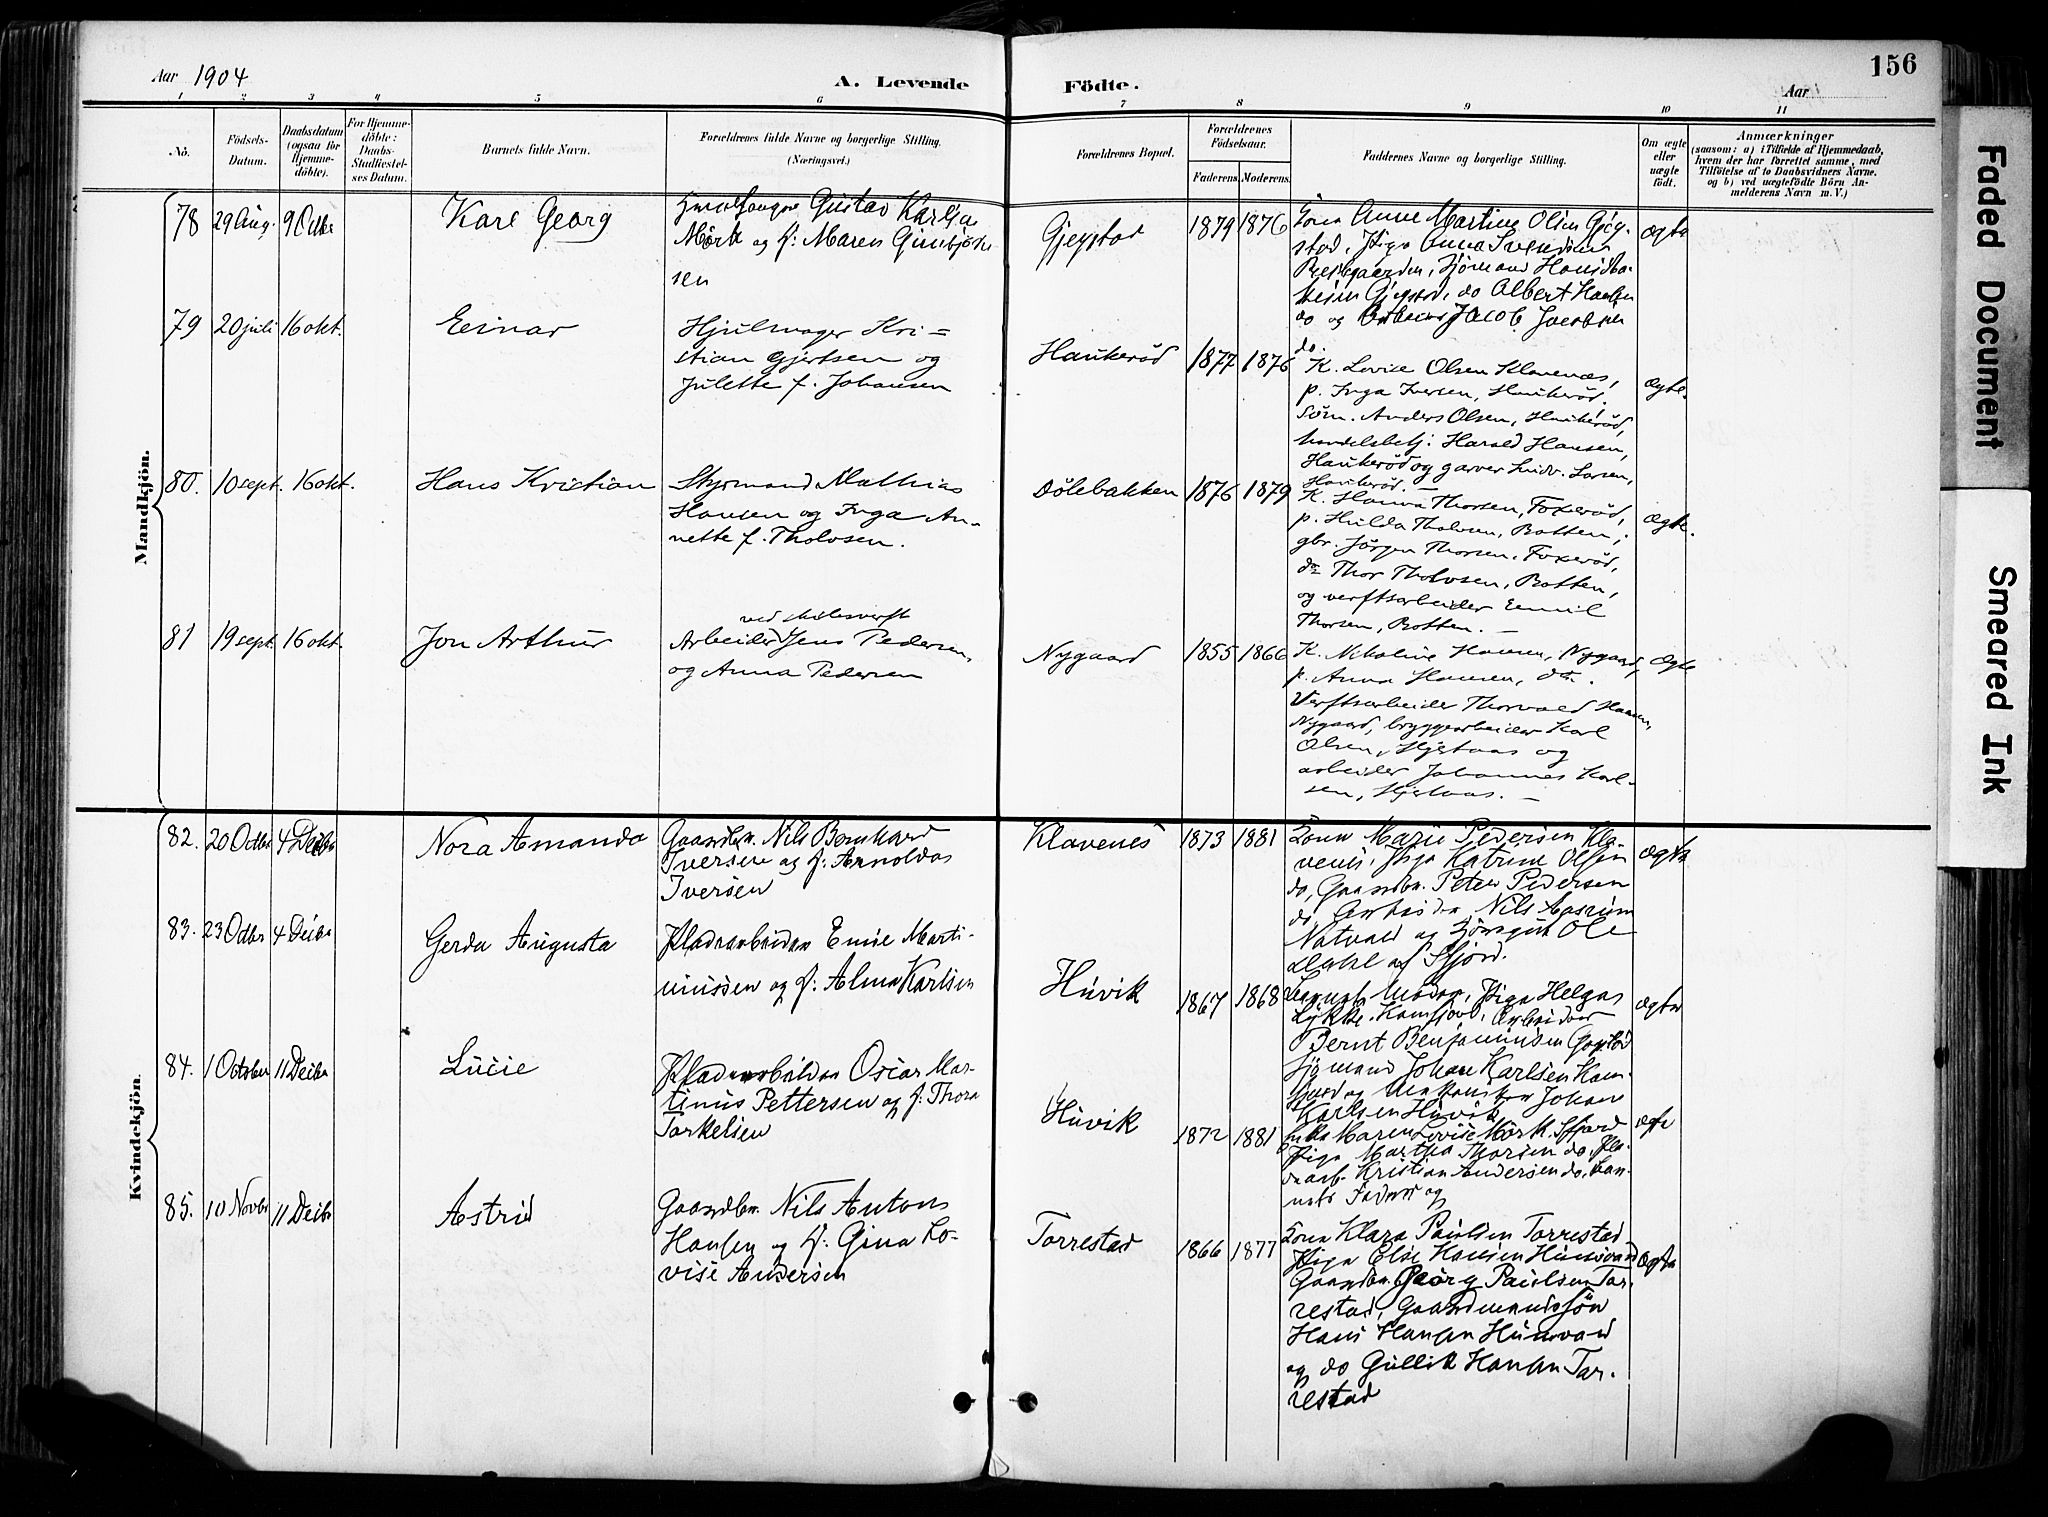 156
Aar 1904
A. Levende
Födte.
Aar
1 2 3 4 5 6
7 8 9 10 11
No.
Födsels-
Datum.
Daabsdatum
(ogsaa for
Hjemme-
döbte).
For Hjemme-
döbte:
Daabs-
Stadfæstel-
ses Datum.
Barnets fulde Navn.
Forældrenes fulde Navne og borgerlige Stilling.
(Næringsvei.)
Forældrenes Bopæl.
Forældrenes
Födselsaar.
Faderens. Moderens.
Faddernes Navne og borgerlige Stilling.
Om ægte
eller
uægte
födt.
Anmærkninger
(saasom: a) i Tilfælde af Hjemmedaab,
hvem der har forrettet samme, med
Tilföielse af to Daabsvidners Navne.
og b) ved uægtefödte Börn An-
melderens Navn m. V.)
Mandkjön.
78 29 Aug. 9 Octbr
Karl Georg
Gustav Karljo
Mörk og f: Maren Gunbjörn
sen
Gjegstad
1879 1876
Anne Martine Olsen Gjeg-
stad, Piga Anna Svendsen
Prestegaarden, Sjömand
Gjegstad, do Albert Hansen
do og Jacob Jacobsen
do.
ægte
79 20 juli 16 okt.
Einar
Hjulmager Kri-
stian Gjertsen og
Julette f. Johansen
Haukeröd
1877 1876
K. Lovise Olsen Klavenæs,
p. Inga Iversen, Haukeröd,
Söm. Anders Olsen, Haukeröd,
handelsbetj: Harald Hansen,
Haukeröd og garver Ludv. Larsen,
Haukeröd. —
Ægte.
80. 10 sept. 16 okt.
Hans Kristian
Styrmand Mathias
Hansen og Inga An-
nette f. Tholvsen.
Dölebakken
1876 1879
K. Hanna Thorsen, Foxeröd,
p. Hulda Tholvsen, Botten,
gbr. Jörgen Thorsen, Foxeröd,
do Thor Tholvsen, Botten,
og verftsarbeider Emil
Thorsen, Botten. —
Ægte.
81 19 sept. 16 okt.
Jon Arthur
Arbeider Jens Pedersen,
og Anna Pedersen
Nygaard
1855 1866
K. Nikoline Hansen, Nygaard,
p. Anna Hansen, do.
Verftsarbeider Thorvald Hansen,
Nygaard, bryggearbeider Karl
Olsen, Hjertaas og
arbeider Johannes Karl-
sen, Hjertaas. —
Ægte
Kvindekjön.
82. 20 Octbr 4 Decbr
Nora Amanda
Gaardbr. Nils Bernhard
Iversen og f: Arnolda
Iversen
Klavenes
1873 1881
Kona Marie Pedersen Kla-
venes, Piga Katrine Olsen
do, Gaardbr. Peter Pedersen
do, Arbeider Nils
Natvald og Ole
af Sfjord.
ægte
83. 23 Octbr 4 Decbr
Gerda Augusta
Pladsarbeider Emil Marti-
nussen og f: Alma Karlsen
Huvik
1867 1868
Moder, Piga Helga
Lykke Kamfjord, Arbeider
Bernt Benjaminsen
Sjömand Johan Karlsen Kam-
fjord og Johan
Karlsen Huvik
ægte
84. 1 October 11 Decbr
Lucie
Pladsarbeider Oscar Mar-
tinus Pettersen og f: Thora
Torkelsen
Huvik
1872 1881
Enke Maren Lovise Mörk Sfjord
Piga Martha Thorsen do, Pla-
dsarb. Kristian Andersen do, Bar-
nets Fader og
ægte
85. 10 Novbr 11 Decbr
Astrid
Gaardbr. Nils Anton
Hansen og f: Gina Lo-
vise Andersen
Torrestad
1866 1877
Kona Klara Paulsen Torrestad
Piga Else Hansen Hunsvand
Gaardbr. Georg Paulsen Tor-
restad, Gaardmandssön
Hans Hansen Hunsvand
og do Gullik Hansen Tor-
restad
ægte
Faded Document
Smeared Ink